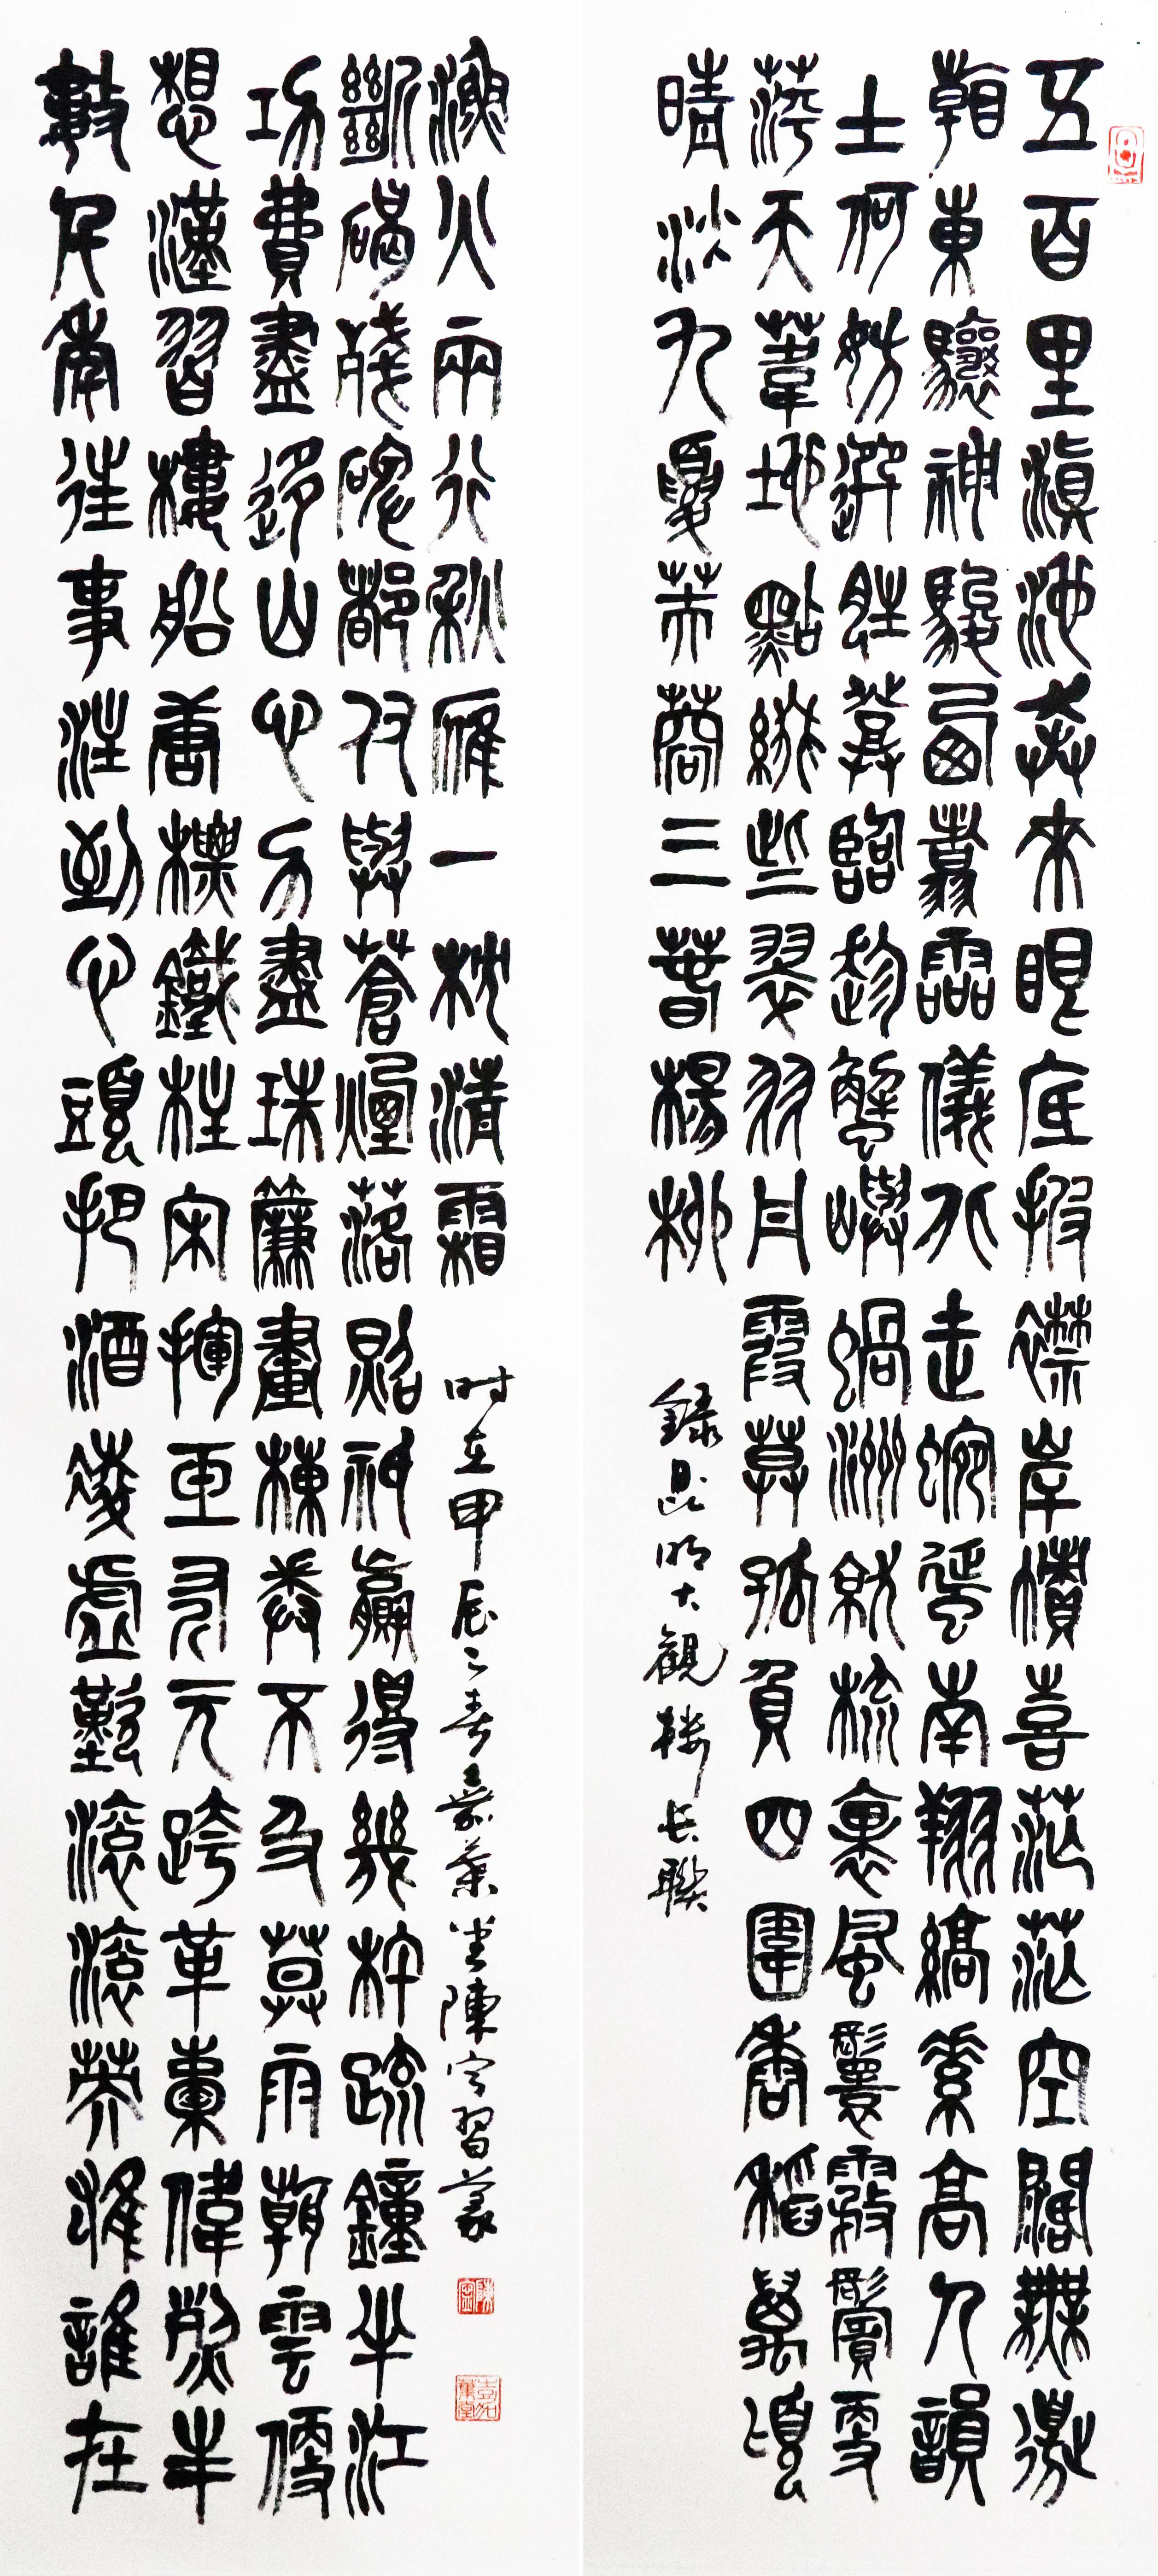 五百里滇池奔來眼底披襟岸幘喜茫茫空闊無邊
看東驤神駿西翥靈儀北走蜿蜒南翔縞素高人韻
士何妨選勝登臨趁蟹嶼蝸洲就梳裹風鬟霧鬢更
蘋天葦地點綴些翠羽丹霞莫孤負四圍香稻萬頃
晴沙九夏芙蓉三春楊柳
錄昆明大觀樓長聯
數千年往事注到心頭把酒凌虛歎滾滾英雄誰在
想漢習樓船唐標鐵柱宋揮玉斧元跨革囊偉烈豐
功費盡移山心力盡珠簾畫棟卷不及暮雨朝雲便
斷碣殘碑都付與蒼煙落照祇贏得幾杵疏鐘半江
漁火兩行秋雁一枕清霜
时在甲辰之春嘉葉堂陳宇習篆